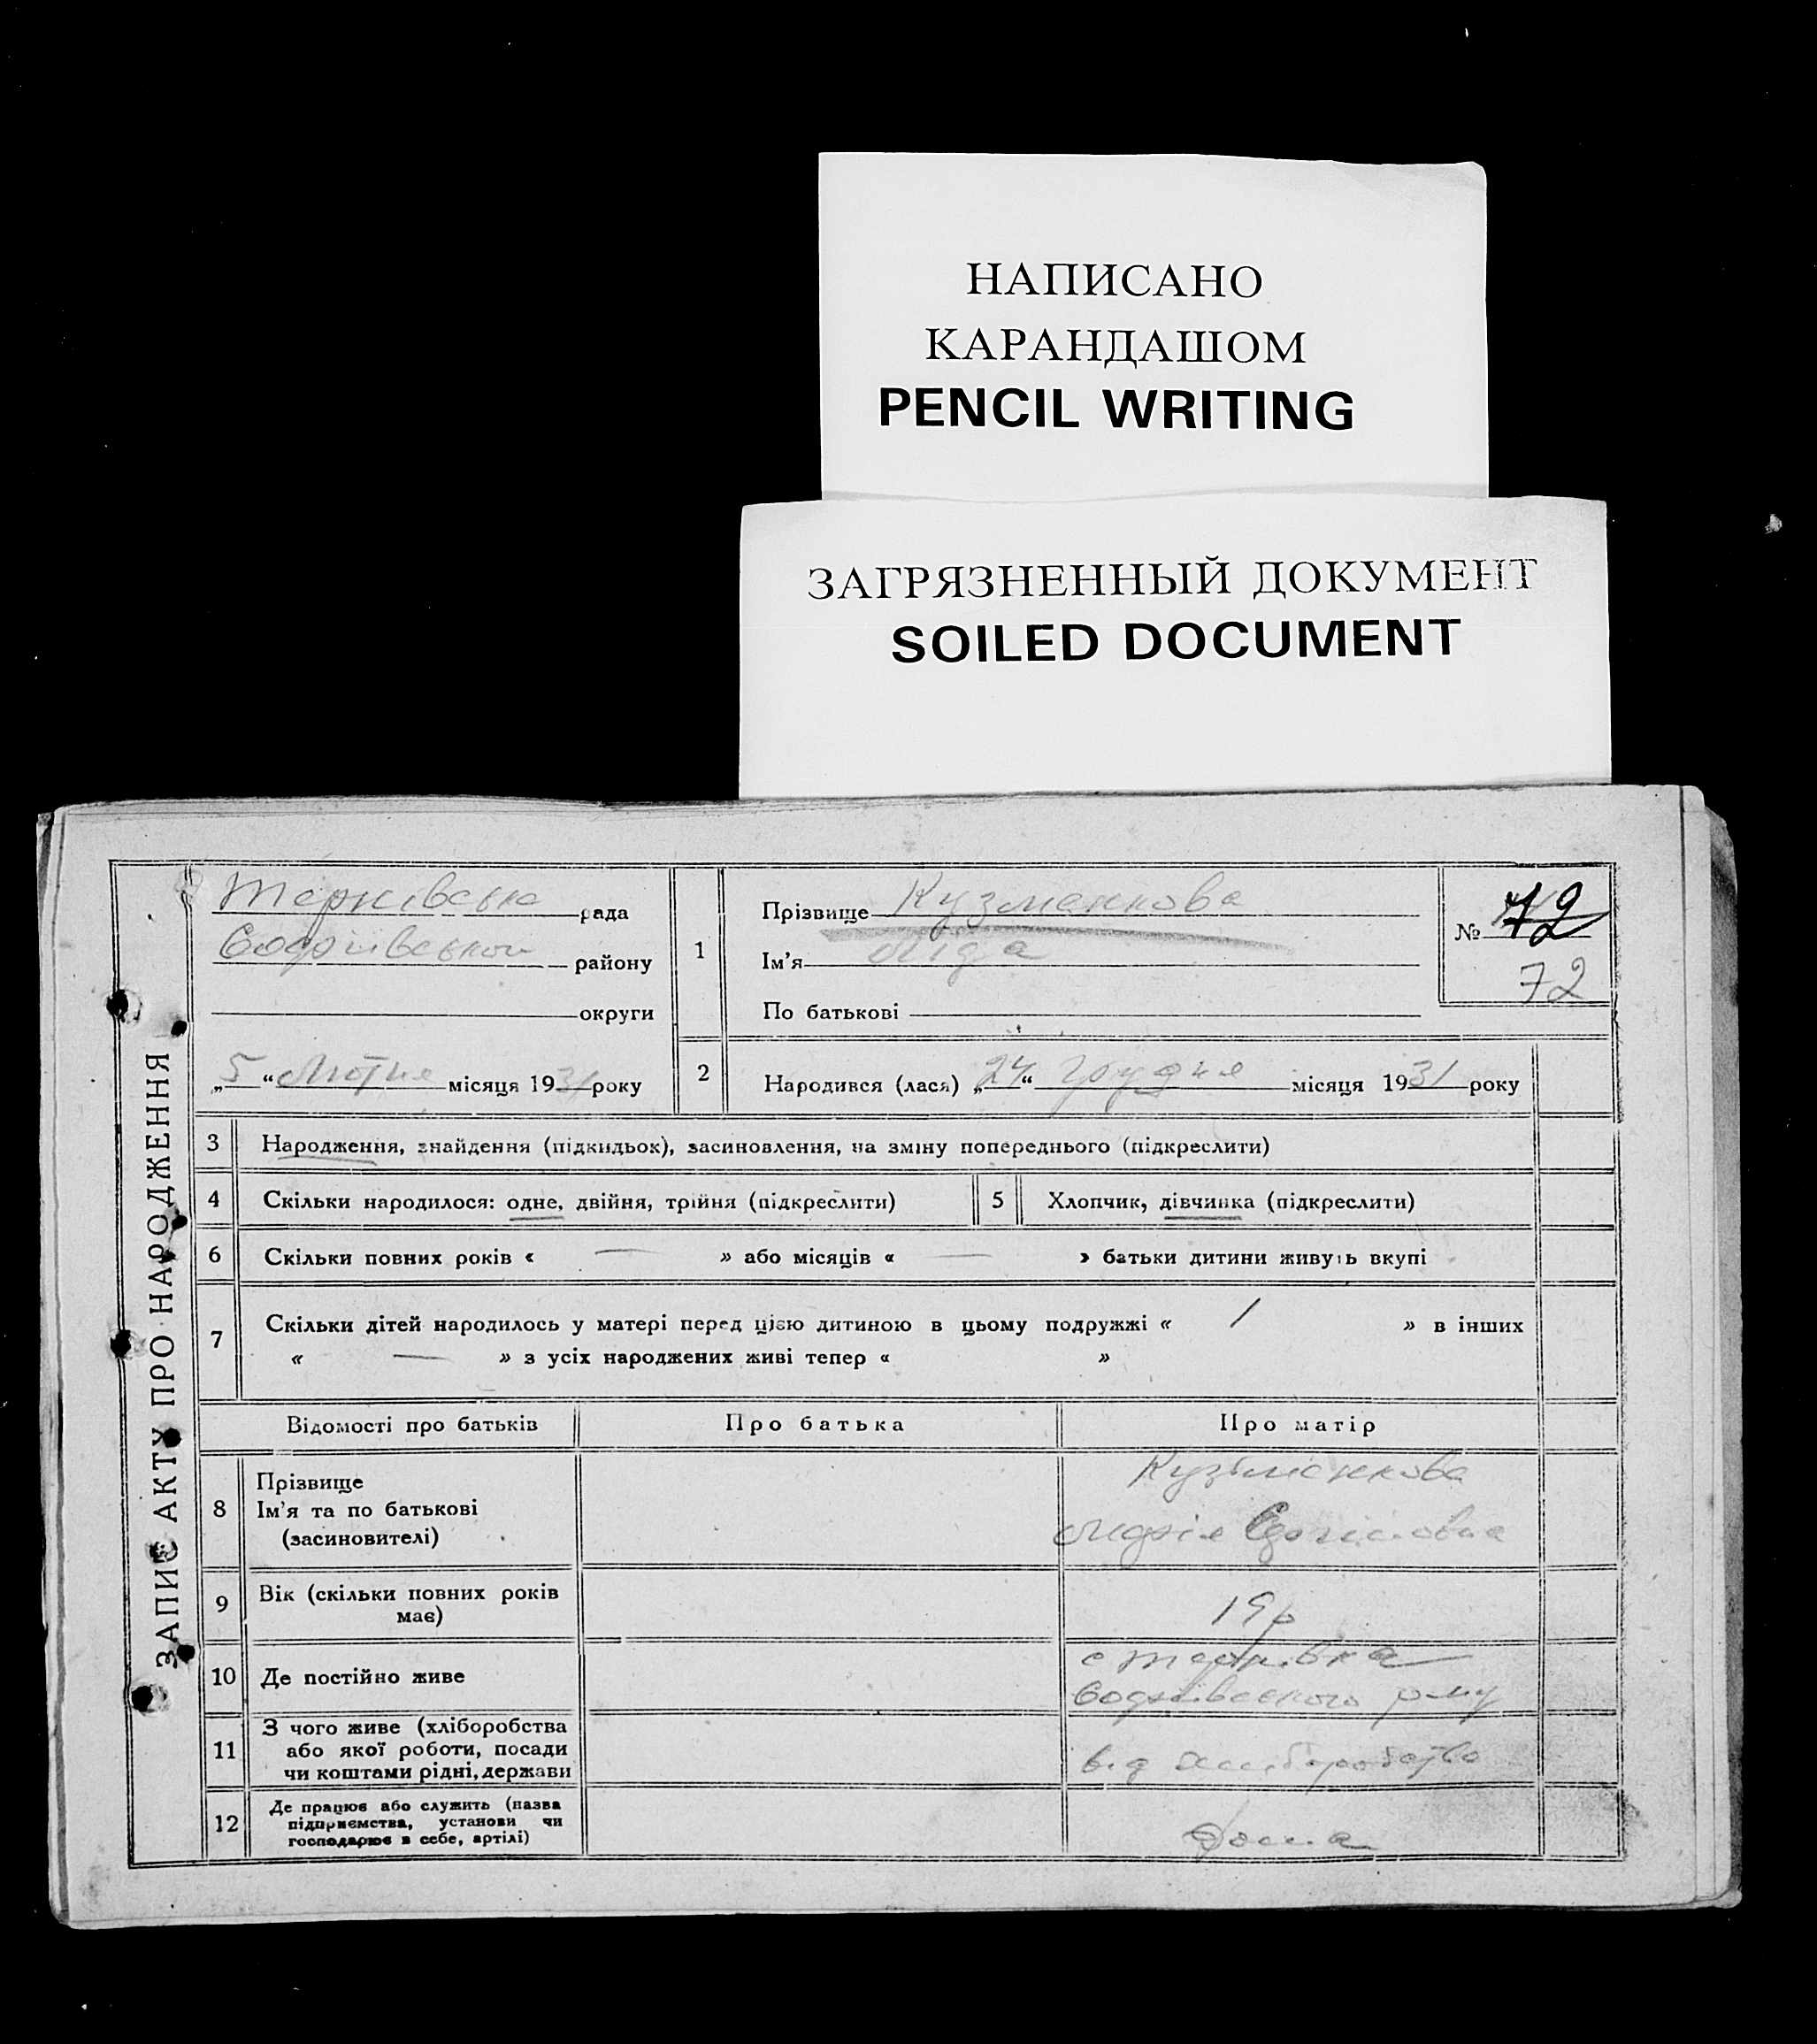 НАПИСАНО
КАРАНДАШОМ
PENCIL WRITING
ЗАГРЯЗНЕННЫЙ ДОКУМЕНТ
SOILED DOCUMENT
ЗАПИС АКТУ ПРО НАРОДЖЕННЯ
Тернівська рада
району
округи
„5“ Лютня місяця 1931 року
1
Прізвище Кузменкова
Ім'я Ліда
По батькові
№ 72
72
2
Народився (лася) „24“ Грудня місяця 1931 року
3 Народження, знайдення (підкидьок), засиновлення, на зміну попереднього (підкреслити)
4 Скільки народилося: одне, двійня, трійня (підкреслити)
5 Хлопчик, дівчинка (підкреслити)
6 Скільки повних років « — » або місяців « — » батьки дитини живуть вкупі
7 Скільки дітей народилось у матері перед цією дитиною в цьому подружжі « / » в інших
« — » з усіх народжених живі тепер « »
Відомості про батьків Про батька Про матір
8 Прізвище
Ім'я та по батькові
(засиновителі)
Кузьменкова
9 Вік (скільки повних років
має)
19р
10 Де постійно живе
с Тернівка
11 З чого живе (хліборобства
або якої роботи, посади
чи коштами рідні, держави
від
12 Де працює або служить (назва
підприємства, установи чи
господарює в себе, артілі)
Дома